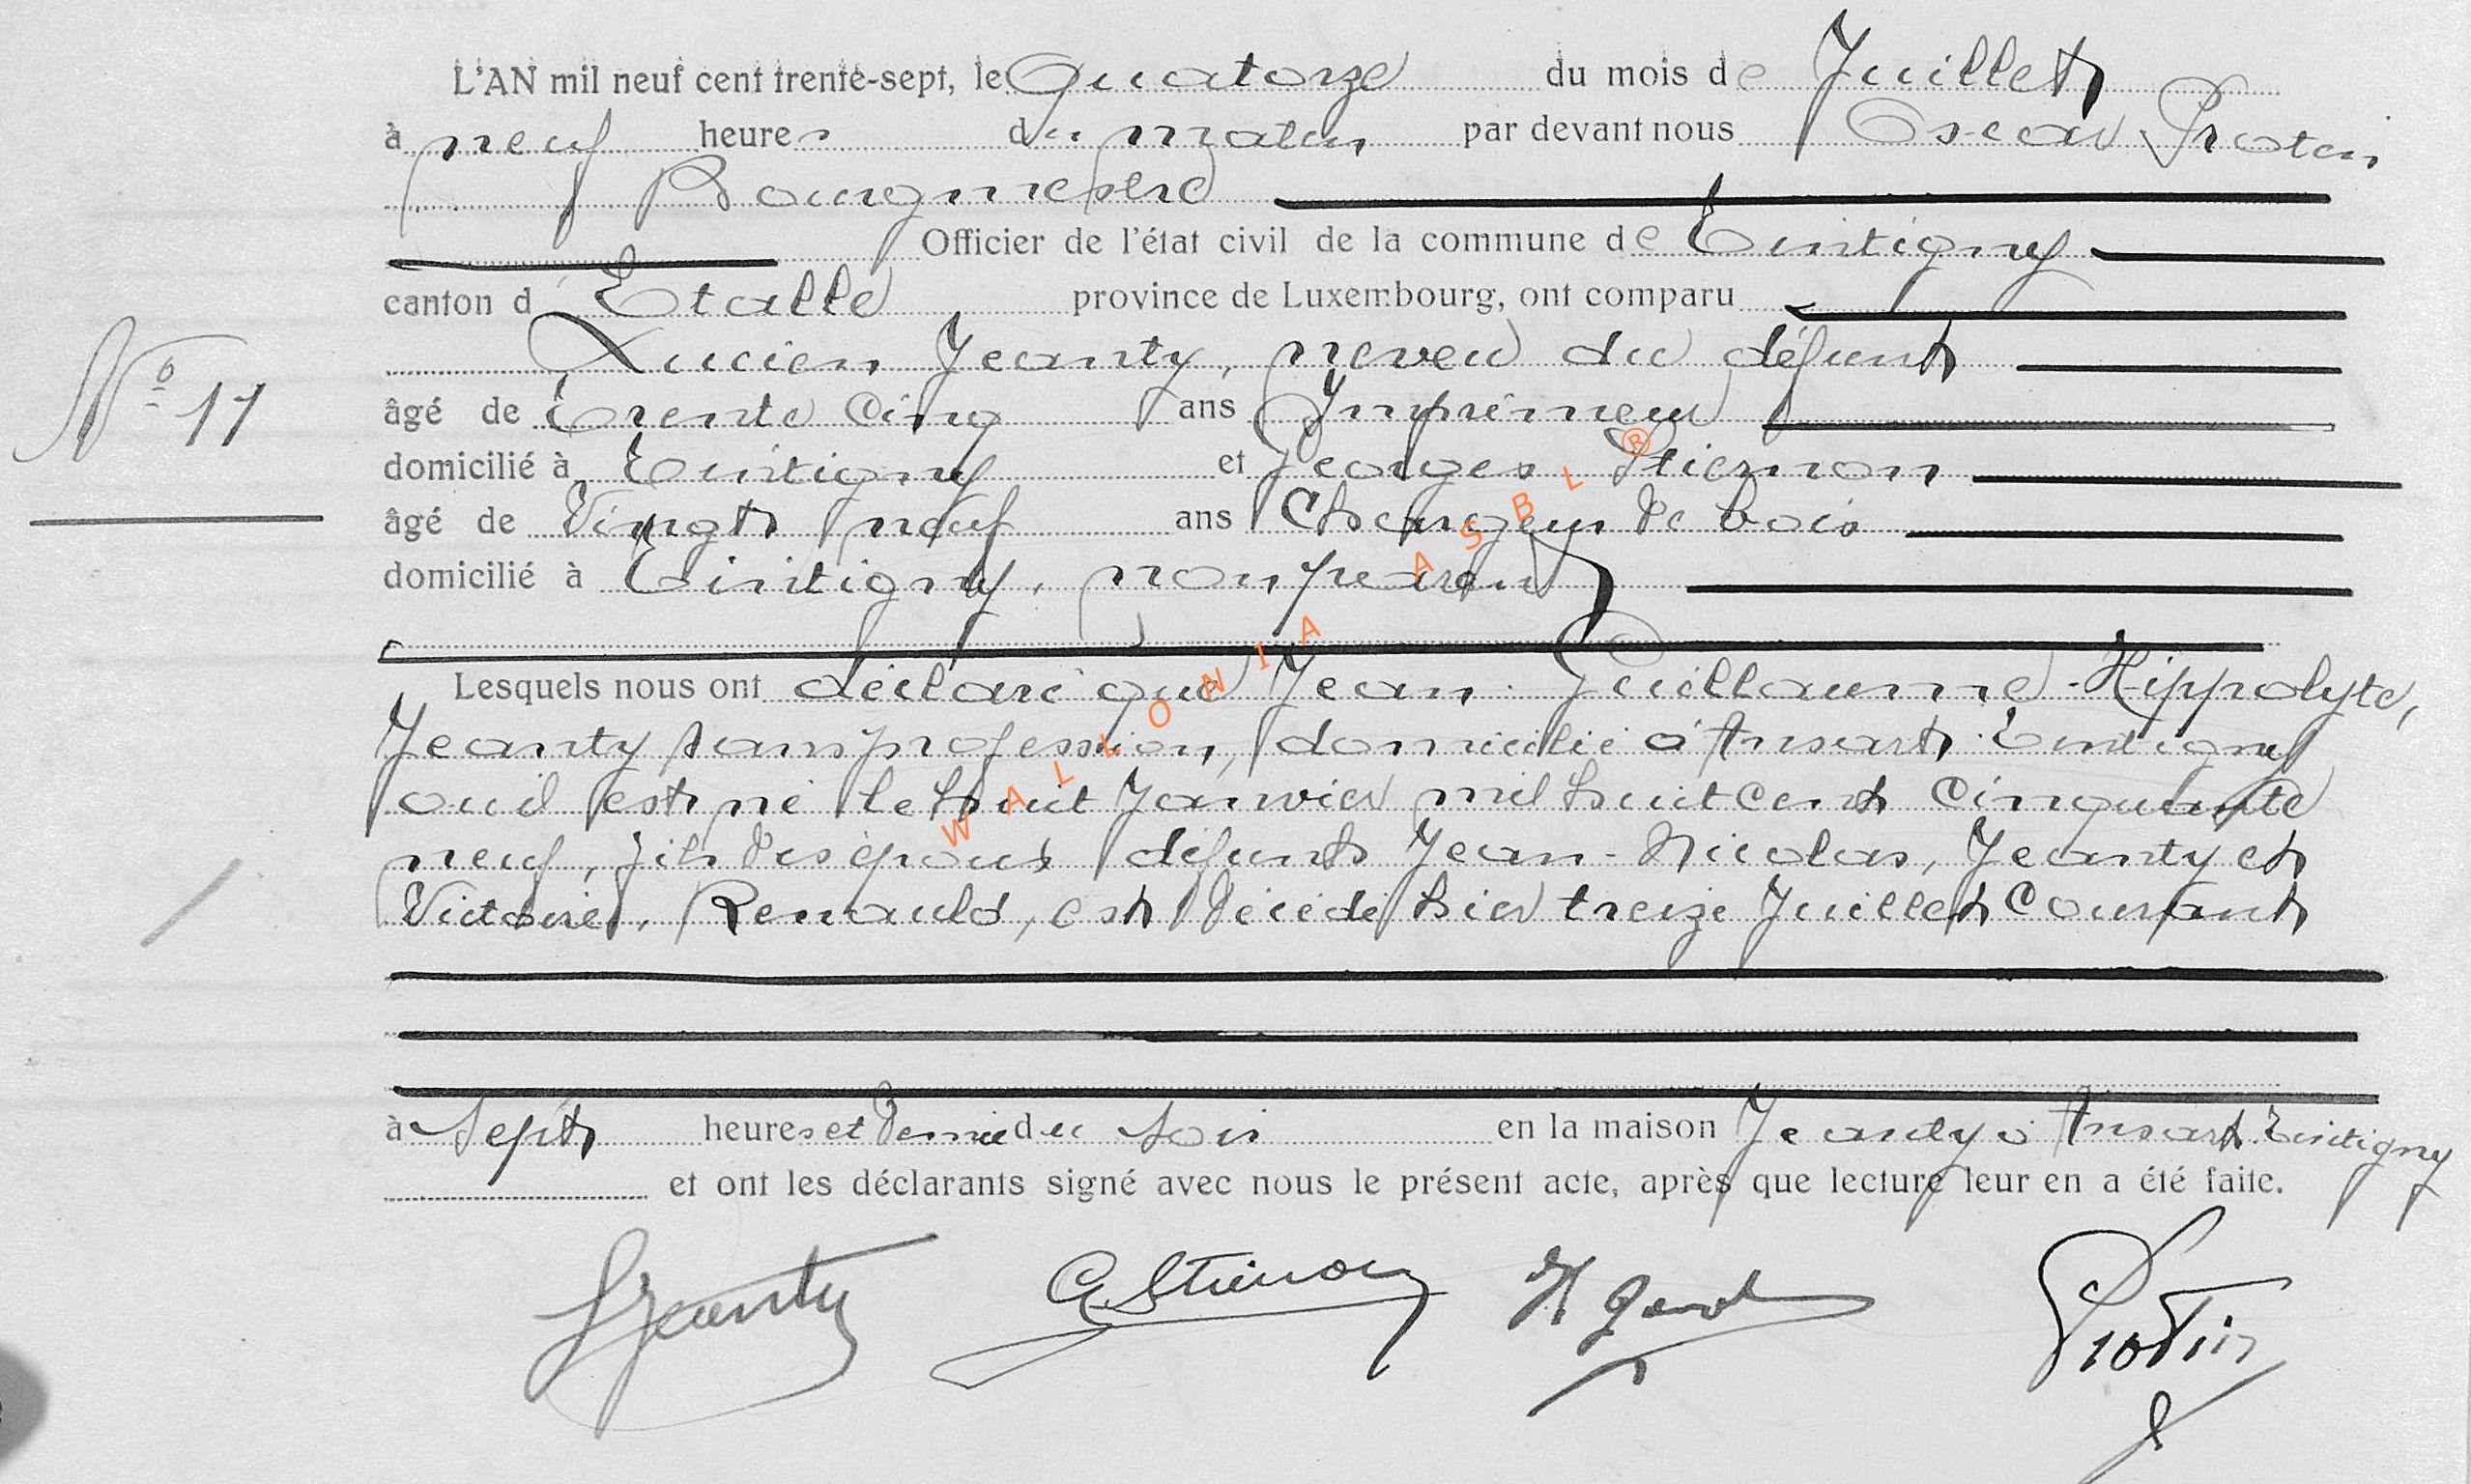 L'AN mil neuf cent trente-sept, le Quatorze du mois de Juillet
à neuf heures du matin par devant nous Oscar Protin
Bourgmestre
Officier de l'état civil de la commune de Tintigny
canton d Etalle province de Luxembourg, ont comparu
Lucien Jeanty, neveu du défunt
N° 11
âgé de Trente cinq ans Imprimeur
domicilié à Tintigny et Georges Stiernon
âgé de Vingt neuf ans Chargeur de bois
domicilié à Tintigny, non parent
Lesquels nous ont déclaré que Jean-Guillaume-Hippolyte,
Jeanty sans profession, domicilié à Ansart-Tintigny
ou il est né le huit Janvier mil huit cent cinquante
neuf, fils des époux défunts Jean-Nicolas, Jeanty et
Victoire, Renauld, est décédé hier treize Juillet courant
à sept heures et demie du soir en la maison Jeanty à Ansart Tintigny
et ont les déclarants signé avec nous le présent acte, après que lecture leur en a été faite.
LJeanty G. Stiernon Protin
WALLONIA ASBL ®